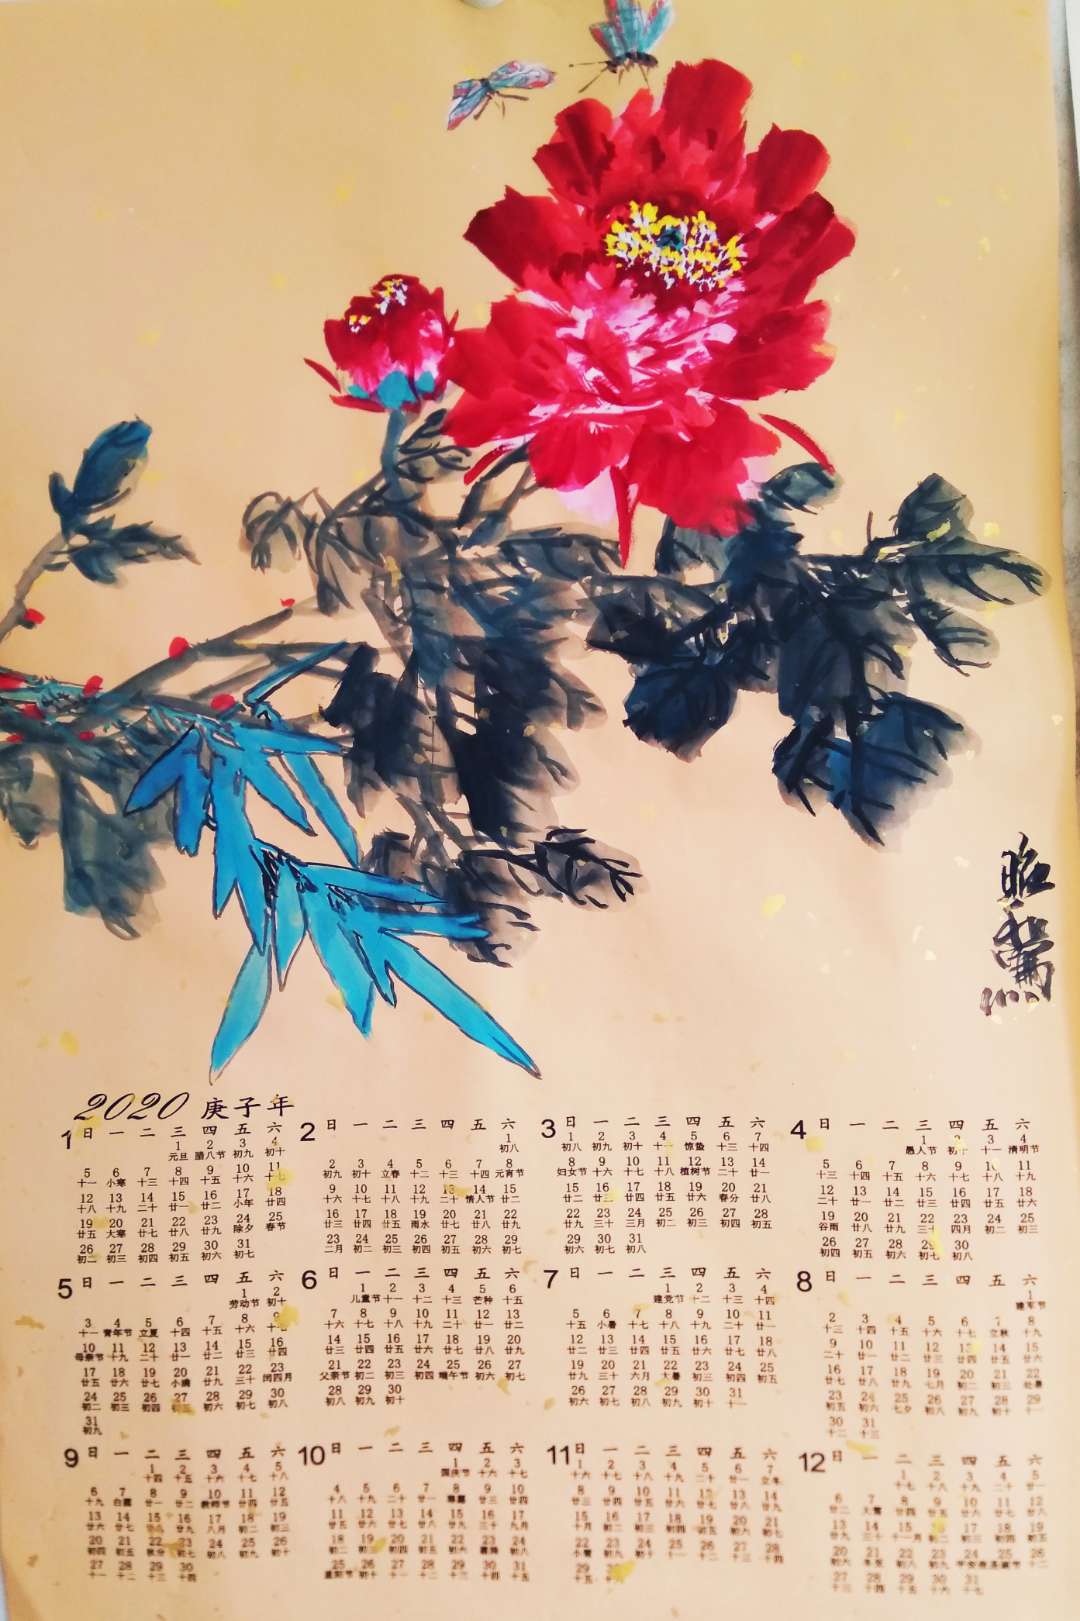 2020 庚子年
1 日 一 二 三 四 五 六
1 2 3 4
元旦 腊八节 初九 初十
5 6 7 8 9 10 11
十一 小寒 十三 十四 十五 十六 十七
12 13 14 15 16 17 18
十八 十九 二十 廿一 廿二 小年 廿四
19 20 21 22 23 24 25
廿五 大寒 廿七 廿八 廿九 除夕 春节
26 27 28 29 30 31
初二 初三 初四 初五 初六 初七
2 日 一 二 三 四 五 六
1
初八
2 3 4 5 6 7 8
初九 初十 立春 十二 十三 十四 元宵节
9 10 11 12 13 14 15
十六 十七 十八 十九 二十 情人节 廿二
16 17 18 19 20 21 22
廿三 廿四 廿五 雨水 廿七 廿八 廿九
23 24 25 26 27 28 29
二月 初二 初三 初四 初五 初六 初七
3 日 一 二 三 四 五 六
1 2 3 4 5 6 7
初八 初九 初十 十一 惊蛰 十三 十四
8 9 10 11 12 13 14
妇女节 十六 十七 十八 植树节 二十 廿一
15 16 17 18 19 20 21
廿二 廿三 廿四 廿五 廿六 春分 廿八
22 23 24 25 26 27 28
廿九 三十 三月 初二 初三 初四 初五
29 30 31
初六 初七 初八
4 日 一 二 三 四 五 六
1 2 3 4
愚人节 初十 十一 清明节
5 6 7 8 9 10 11
十三 十四 十五 十六 十七 十八 十九
12 13 14 15 16 17 18
二十 廿一 廿二 廿三 廿四 廿五 廿六
19 20 21 22 23 24 25
谷雨 廿八 廿九 三十 四月 初二 初三
26 27 28 29 30
初四 初五 初六 初七 初八
5 日 一 二 三 四 五 六
1 2
劳动节 初十
3 4 5 6 7 8 9
十一 青年节 立夏 十四 十五 十六 十七
10 11 12 13 14 15 16
母亲节 十九 二十 廿一 廿二 廿三 廿四
17 18 19 20 21 22 23
廿五 廿六 廿七 小满 廿九 三十 闰四月
24 25 26 27 28 29 30
初二 初三 初四 初五 初六 初七 初八
31
初九
6 日 一 二 三 四 五 六
1 2 3 4 5 6
儿童节 十一 十二 十三 芒种 十五
7 8 9 10 11 12 13
十六 十七 十八 十九 二十 廿一 廿二
14 15 16 17 18 19 20
廿三 廿四 廿五 廿六 廿七 廿八 廿九
21 22 23 24 25 26 27
父亲节 初二 初三 初四 端午节 初六 初七
28 29 30
初八 初九 初十
7 日 一 二 三 四 五 六
1 2 3 4
建党节 十二 十三 十四
5 6 7 8 9 10 11
十五 小暑 十七 十八 十九 二十 廿一
12 13 14 15 16 17 18
廿二 廿三 廿四 廿五 廿六 廿七 廿八
19 20 21 22 23 24 25
廿九 三十 六月 大暑 初三 初四 初五
26 27 28 29 30 31
初六 初七 初八 初九 初十 十一
8 日 一 二 三 四 五 六
1
建军节
2 3 4 5 6 7 8
十三 十四 十五 十六 十七 立秋 十九
9 10 11 12 13 14 15
二十 廿一 廿二 廿三 廿四 廿五 廿六
16 17 18 19 20 21 22
廿七 廿八 廿九 七月 初二 初三 处暑
23 24 25 26 27 28 29
初五 初六 七夕 初八 初九 初十 十一
30 31
十二 十三
9 日 一 二 三 四 五 六
1 2 3 4 5
十四 十五 十六 十七 十八
6 7 8 9 10 11 12
十九 白露 廿一 廿二 教师节 廿四 廿五
13 14 15 16 17 18 19
廿六 廿七 廿八 廿九 八月 初二 初三
20 21 22 23 24 25 26
初四 初五 秋分 初七 初八 初九 初十
27 28 29 30
十一 十二 十三 十四
10 日 一 二 三 四 五 六
1 2 3
国庆节 十六 十七
4 5 6 7 8 9 10
十八 十九 二十 廿一 寒露 廿三 廿四
11 12 13 14 15 16 17
廿五 廿六 廿七 廿八 廿九 三十 九月
18 19 20 21 22 23 24
初二 初三 初四 初五 初六 霜降 初八
25 26 27 28 29 30 31
重阳节 初十 十一 十二 十三 十四 十五
11 日 一 二 三 四 五 六
1 2 3 4 5 6 7
十六 十七 十八 十九 二十 廿一 立冬
8 9 10 11 12 13 14
廿三 廿四 廿五 廿六 廿七 廿八 廿九
15 16 17 18 19 20 21
十月 初二 初三 初四 初五 初六 初七
22 23 24 25 26 27 28
小雪 初九 初十 十一 十二 十三 十四
29 30
十五 十六
12 日 一 二 三 四 五 六
1 2 3 4 5
十七 十八 十九 二十 廿一
6 7 8 9 10 11 12
廿二 大雪 廿四 廿五 廿六 廿七 廿八
13 14 15 16 17 18 19
廿九 三十 十一月 初二 初三 初四 初五
20 21 22 23 24 25 26
初六 冬至 初八 初九 平安夜 圣诞节 十二
27 28 29 30 31
十三 十四 十五 十六 十七